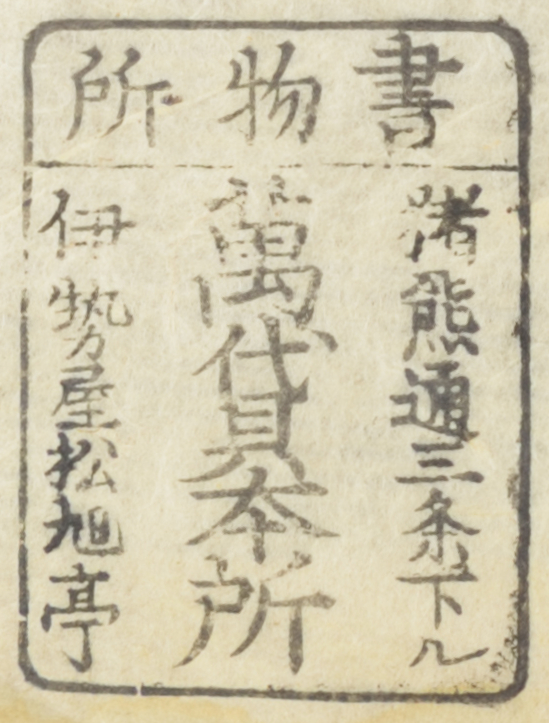 書物所
猪熊通三条下ル
萬貸本所
伊勢屋松旭亭